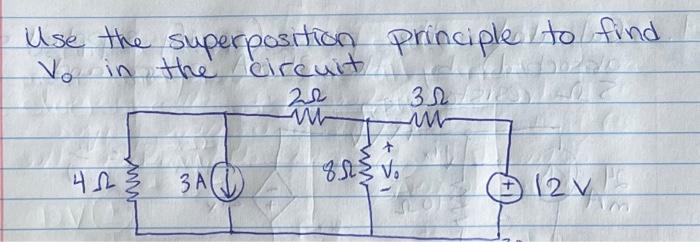 Use the superposition principle to find
Vo in the circuit
2Ω 3Ω
4Ω 3A 8Ω + Vo - + 12V